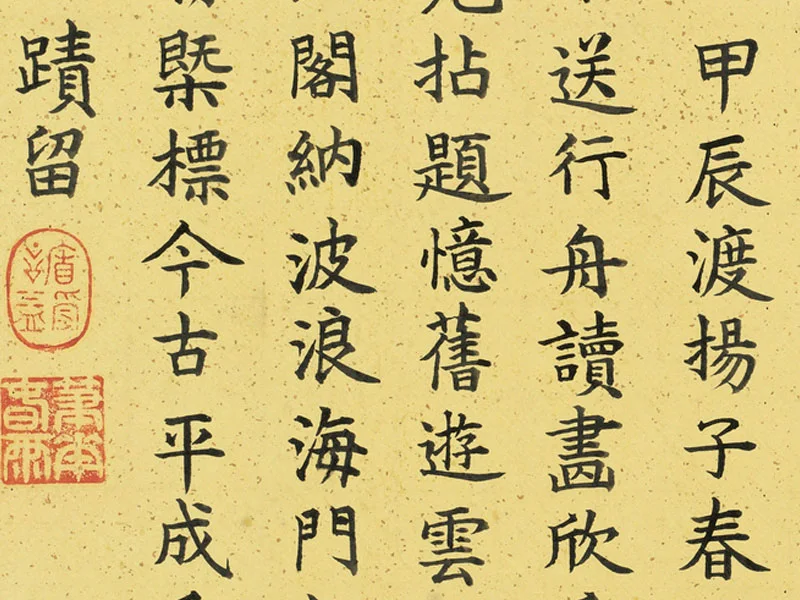 甲辰渡揚子春
送行舟讀畫欣
拈題憶舊遊雲
閣納波浪海門
槩標今古平成
蹟留